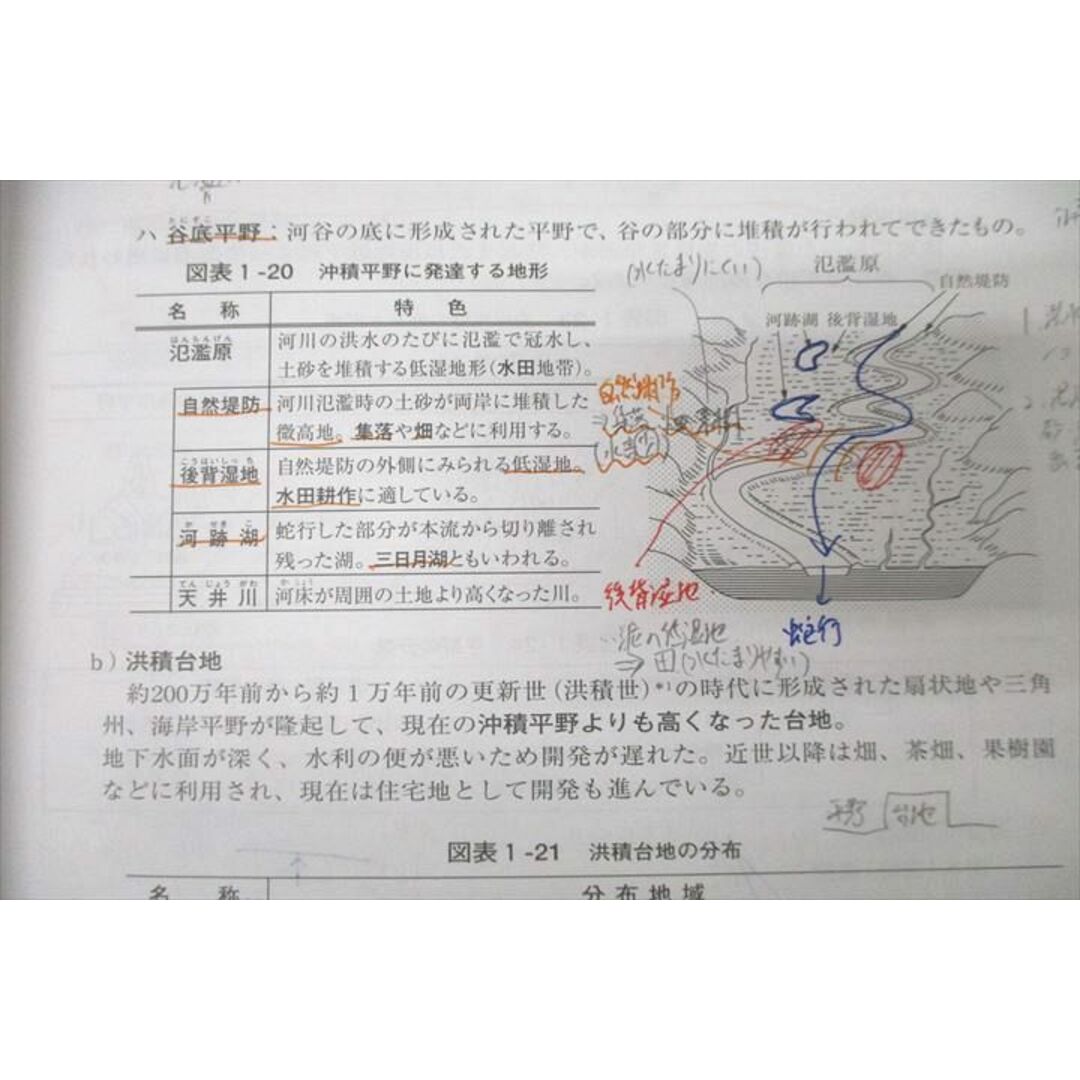 ハ 谷底平野：河谷の底に形成された平野で、谷の部分に堆積が行われてできたもの。
図表1-20 沖積平野に発達する地形
名称 特色
氾濫原 河川の洪水のたびに氾濫で冠水し、
土砂を堆積する低湿地形(水田地帯)。
自然堤防 河川氾濫時の土砂が両岸に堆積した
微高地。集落や畑などに利用する。
後背湿地 自然堤防の外側にみられる低湿地。
水田耕作に適している。
河跡湖 蛇行した部分が本流から切り離され
残った湖。三日月湖ともいわれる。
天井川 河床が周囲の土地より高くなった川。
(水たまりにくい)
氾濫原
自然堤防
河跡湖 後背湿地
後背湿地
蛇行
⇒田(水たまりやすい)
b)洪積台地
約200万年前から約1万年前の更新世(洪積世)*1の時代に形成された扇状地や三角
州、海岸平野が隆起して、現在の沖積平野よりも高くなった台地。
地下水面が深く、水利の便が悪いため開発が遅れた。近世以降は畑、茶畑、果樹園
などに利用され、現在は住宅地として開発も進んでいる。
平野 台地
図表1-21 洪積台地の分布
名称 分布地域